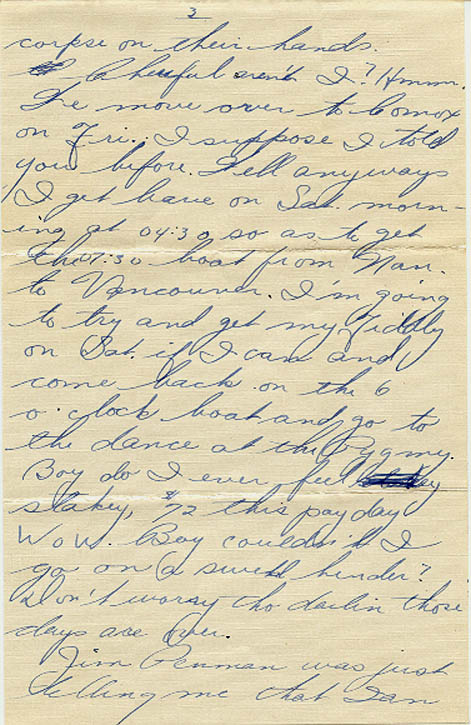 3
corpse on their hands.
Cheerful aren't I? Hmmm.
We move over to Comox
on Fri. I suppose I told
you before. Well anyways
I get leave on Sat. morn-
ing at 04:30 so as to get
the 07:30 boat from Nan.
to Vancouver. I'm going
to try and get my Tiddly
on Sat. if I can and
come back on the 6
o'clock boat and go to
the dance at the Pygmy.
Boy do I ever feel
stakey, $72 this pay day
WoW. Boy couldn't I
go on a swell bender?
Don't worry tho darlin those
days are over.
Jim Penman was just
telling me that Ian